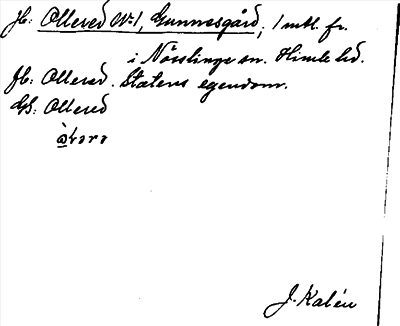 Jb: Ollered No 1, Gunnesgård; 1 mtl. fr.
i Nösslinge sn. Himle hd.
Jb: Ollered. Statens egendom.
GS: Ollered
J. Kalén